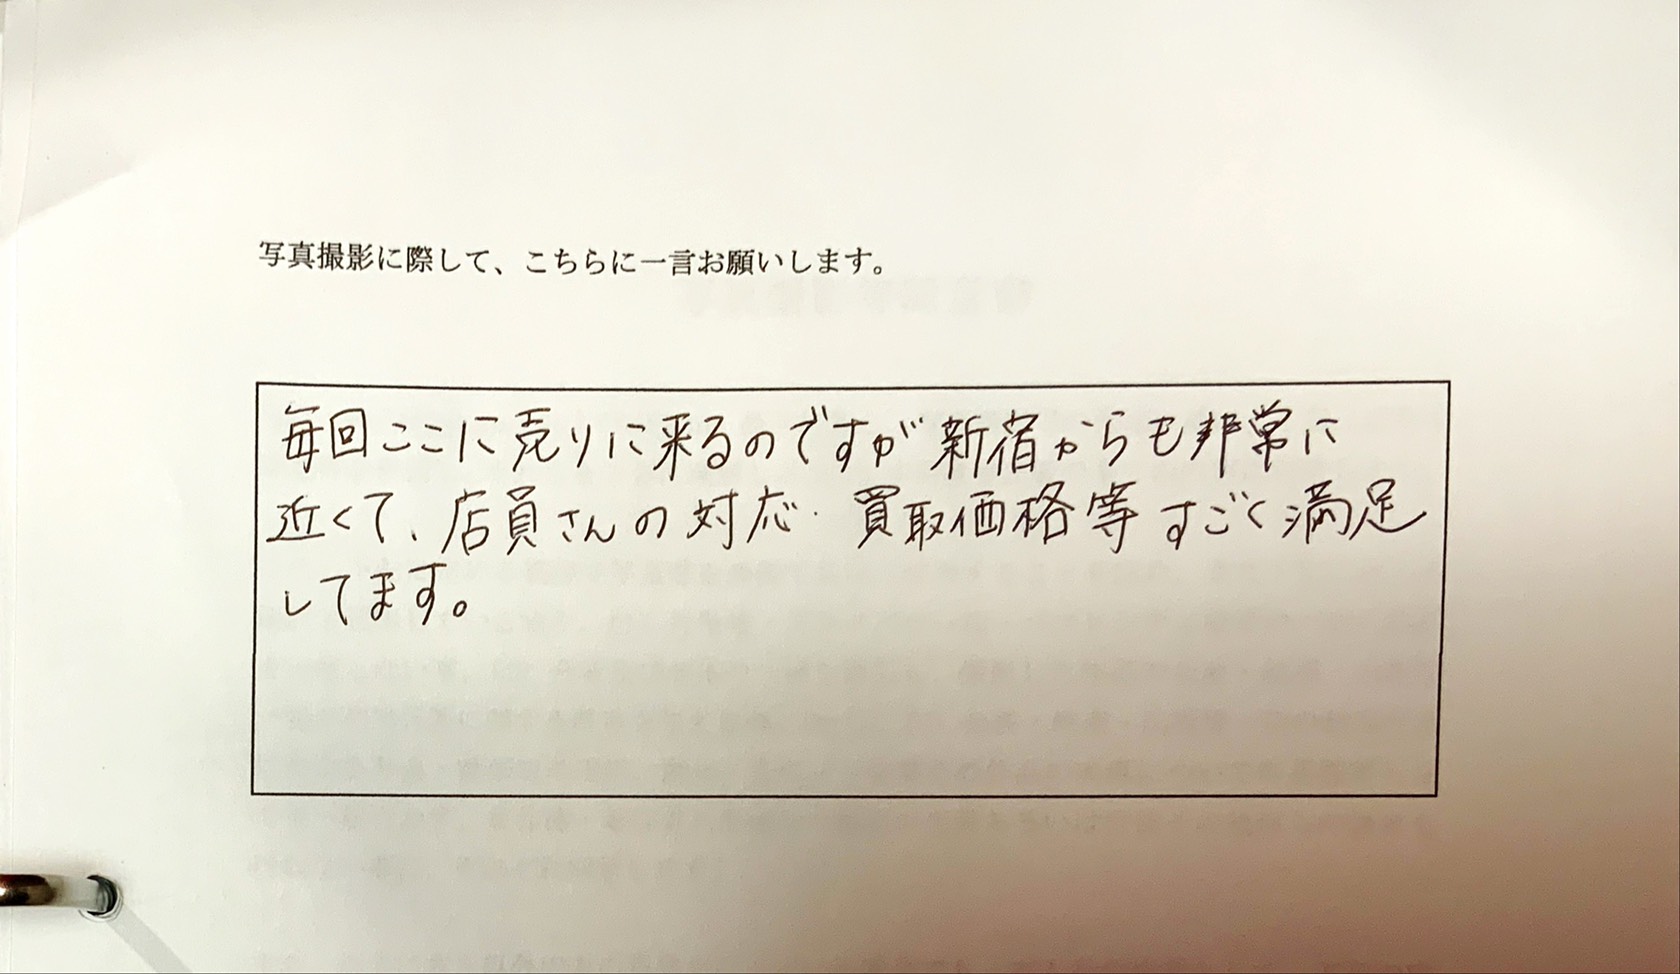 写真撮影に際して、こちらに一言お願いします。
毎回ここに売りに来るのですが新宿からも非常に
近くて、店員さんの対応・買取価格等すごく満足
してます。